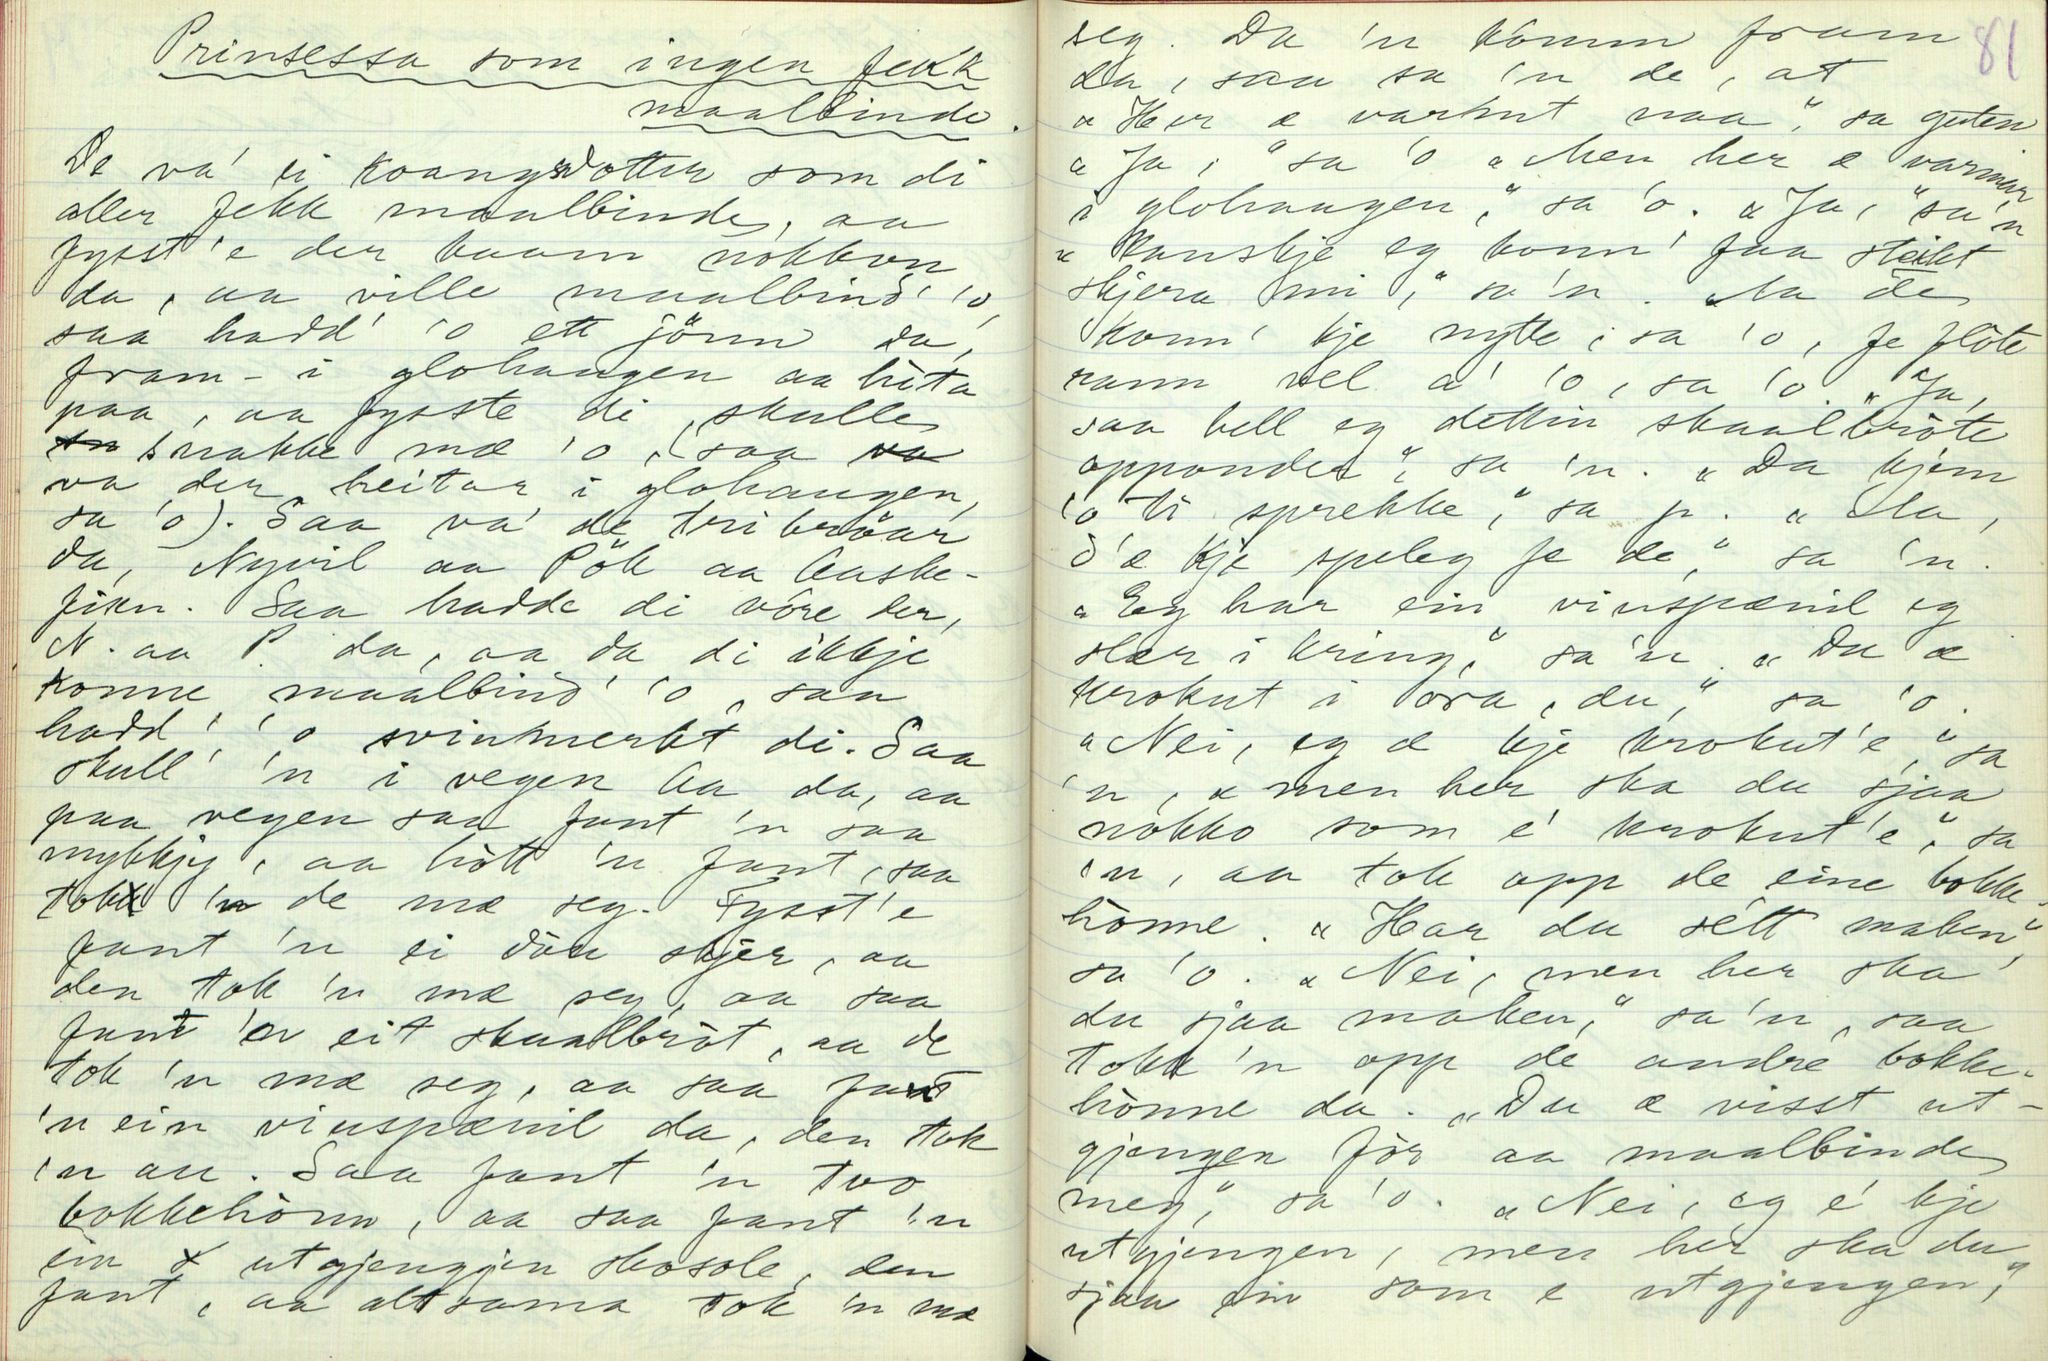 Prinsessa som ingen fekk
maalbinde.
De va' ei koangsdotter som di
aller fekk maalbinde, aa
fysst'e der kaam nokkon
da, aa ville maalbind' 'o,
saa hadd' 'o ett jönn da,
fram-i glohaugen aa hita
paa, aa fysste di skulle
snakke mæ 'o, (saa
va der heitar i glohaugen,
sa 'o). Saa va' de tri bröar
da, Nyvil aa Pök aa Aaske-
fisn. Saa hadde di vore der,
N. aa P. da, aa da di ikkje
konne maalbind' 'o, saa
hadd' 'o svinmerkt di. Saa
skull' 'n i vegen Aa da, aa
paa vegen saa fant 'n saa
mykkjy, aa hött 'n fant, saa
tok 'n de mæ seg. Fysst'e
fant 'n ei döu skjer, aa
den tok 'n mæ seg, aa saa
fant 'n eit skaalbröt, aa de
tok 'n mæ seg, aa saa fant
'n ein vinspænil da, den tok
'n au. Saa fant 'n two
bokkehönn, aa saa fant 'n
ein utgjengjen skosole, den
fant, aa altsama tok 'n mæ
81
seg. Da 'n komm fram
da, saa sa 'n de, at
"Her æ varmt naa", sa guten
"Ja," sa 'o "Men her æ varmar
i glohaugen," sa 'o. "Ja," sa'n
"Kanskje eg konn' faa steikt
skjera mi," sa 'n. Aa de
konn' kje nytte, sa 'o, fe flöte
rann vel a' 'o, sa 'o. "Ja,
saa hell eg dettin skaalbröte
opponde", sa 'n. "Da kjem
'o ti sprekke," sa p. "Aa,
d'æ kje speleg fe de," sa 'n.
"Eg har ein vinspænil eg
slær i kring," sa'n. "Du æ
krokut i ora, du," sa 'o.
"Nei, eg æ kje krokut'e," sa
'n, "men her ska du sjaa
nokko som e' krokut'e," sa
'n, aa tok opp de eine bokke-
hönne. "Har du sett maken,"
sa 'o. "Nei, men her ska
du sjaa maken," sa 'n, saa
tokk 'n opp de andre bokke-
hönne da. "Du æ visst ut-
gjengen för aa maalbinde
meg," sa 'o. "Nei, eg e' kje
utgjengen, men her ska du
sjaa ein som e utgjengen,"